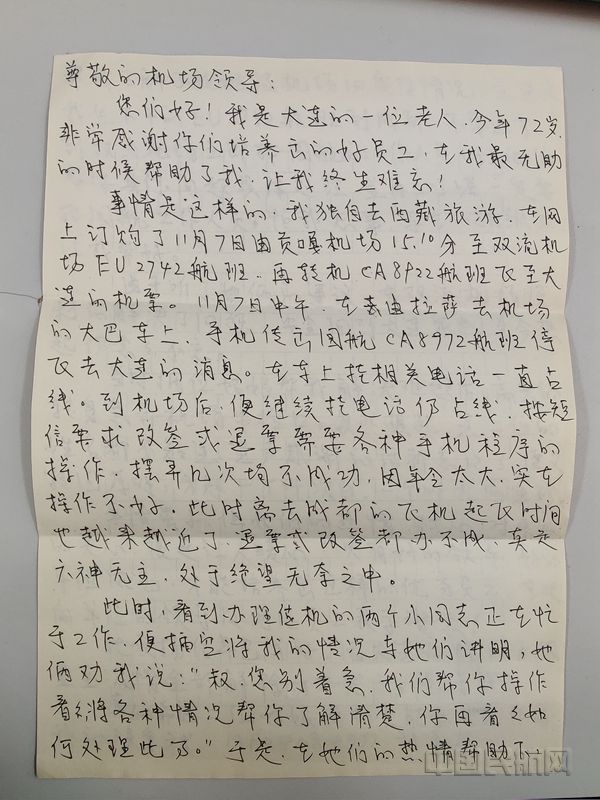 尊敬的机场领导：
您们好！我是大连的一位老人，今年72岁，
非常感谢你们培养出的好员工，在我最无助
的时候帮助了我，让我终生难忘！
事情是这样的，我独自去西藏旅游，在网
上订购了11月7日由贡嘎机场15.10分至双流机
场EU2742航班，再转机CA8922航班飞至大
连的机票。11月7日中午，在去由拉萨去机场
的大巴车上，手机传出国航CA8972航班停
飞去大连的消息。在车上挂相关电话一直占
线。到机场后，便继续挂电话仍占线，按短
信要求改签或退票需要各种手机程序的
操作，摆弄几次均不成功，因年令太大，实在
操作不好。此时离去成都的飞机起飞时间
也越来越近了，退票或改签都办不成，真是
六神无主，处于绝望无奈之中。
此时，看到办理值机的两个小同志正在忙
于工作，便抽空将我的情况与她们讲明，她
俩劝我说："叔，您别着急，我们帮你操作
看看，将各种情况帮你了解清楚，你再看看如
何处理此事。"于是，在她们的热情帮助下，
中国民航网